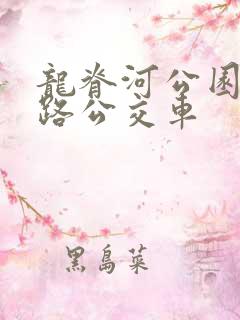 龍脊河公园
路公交車
黑島菜